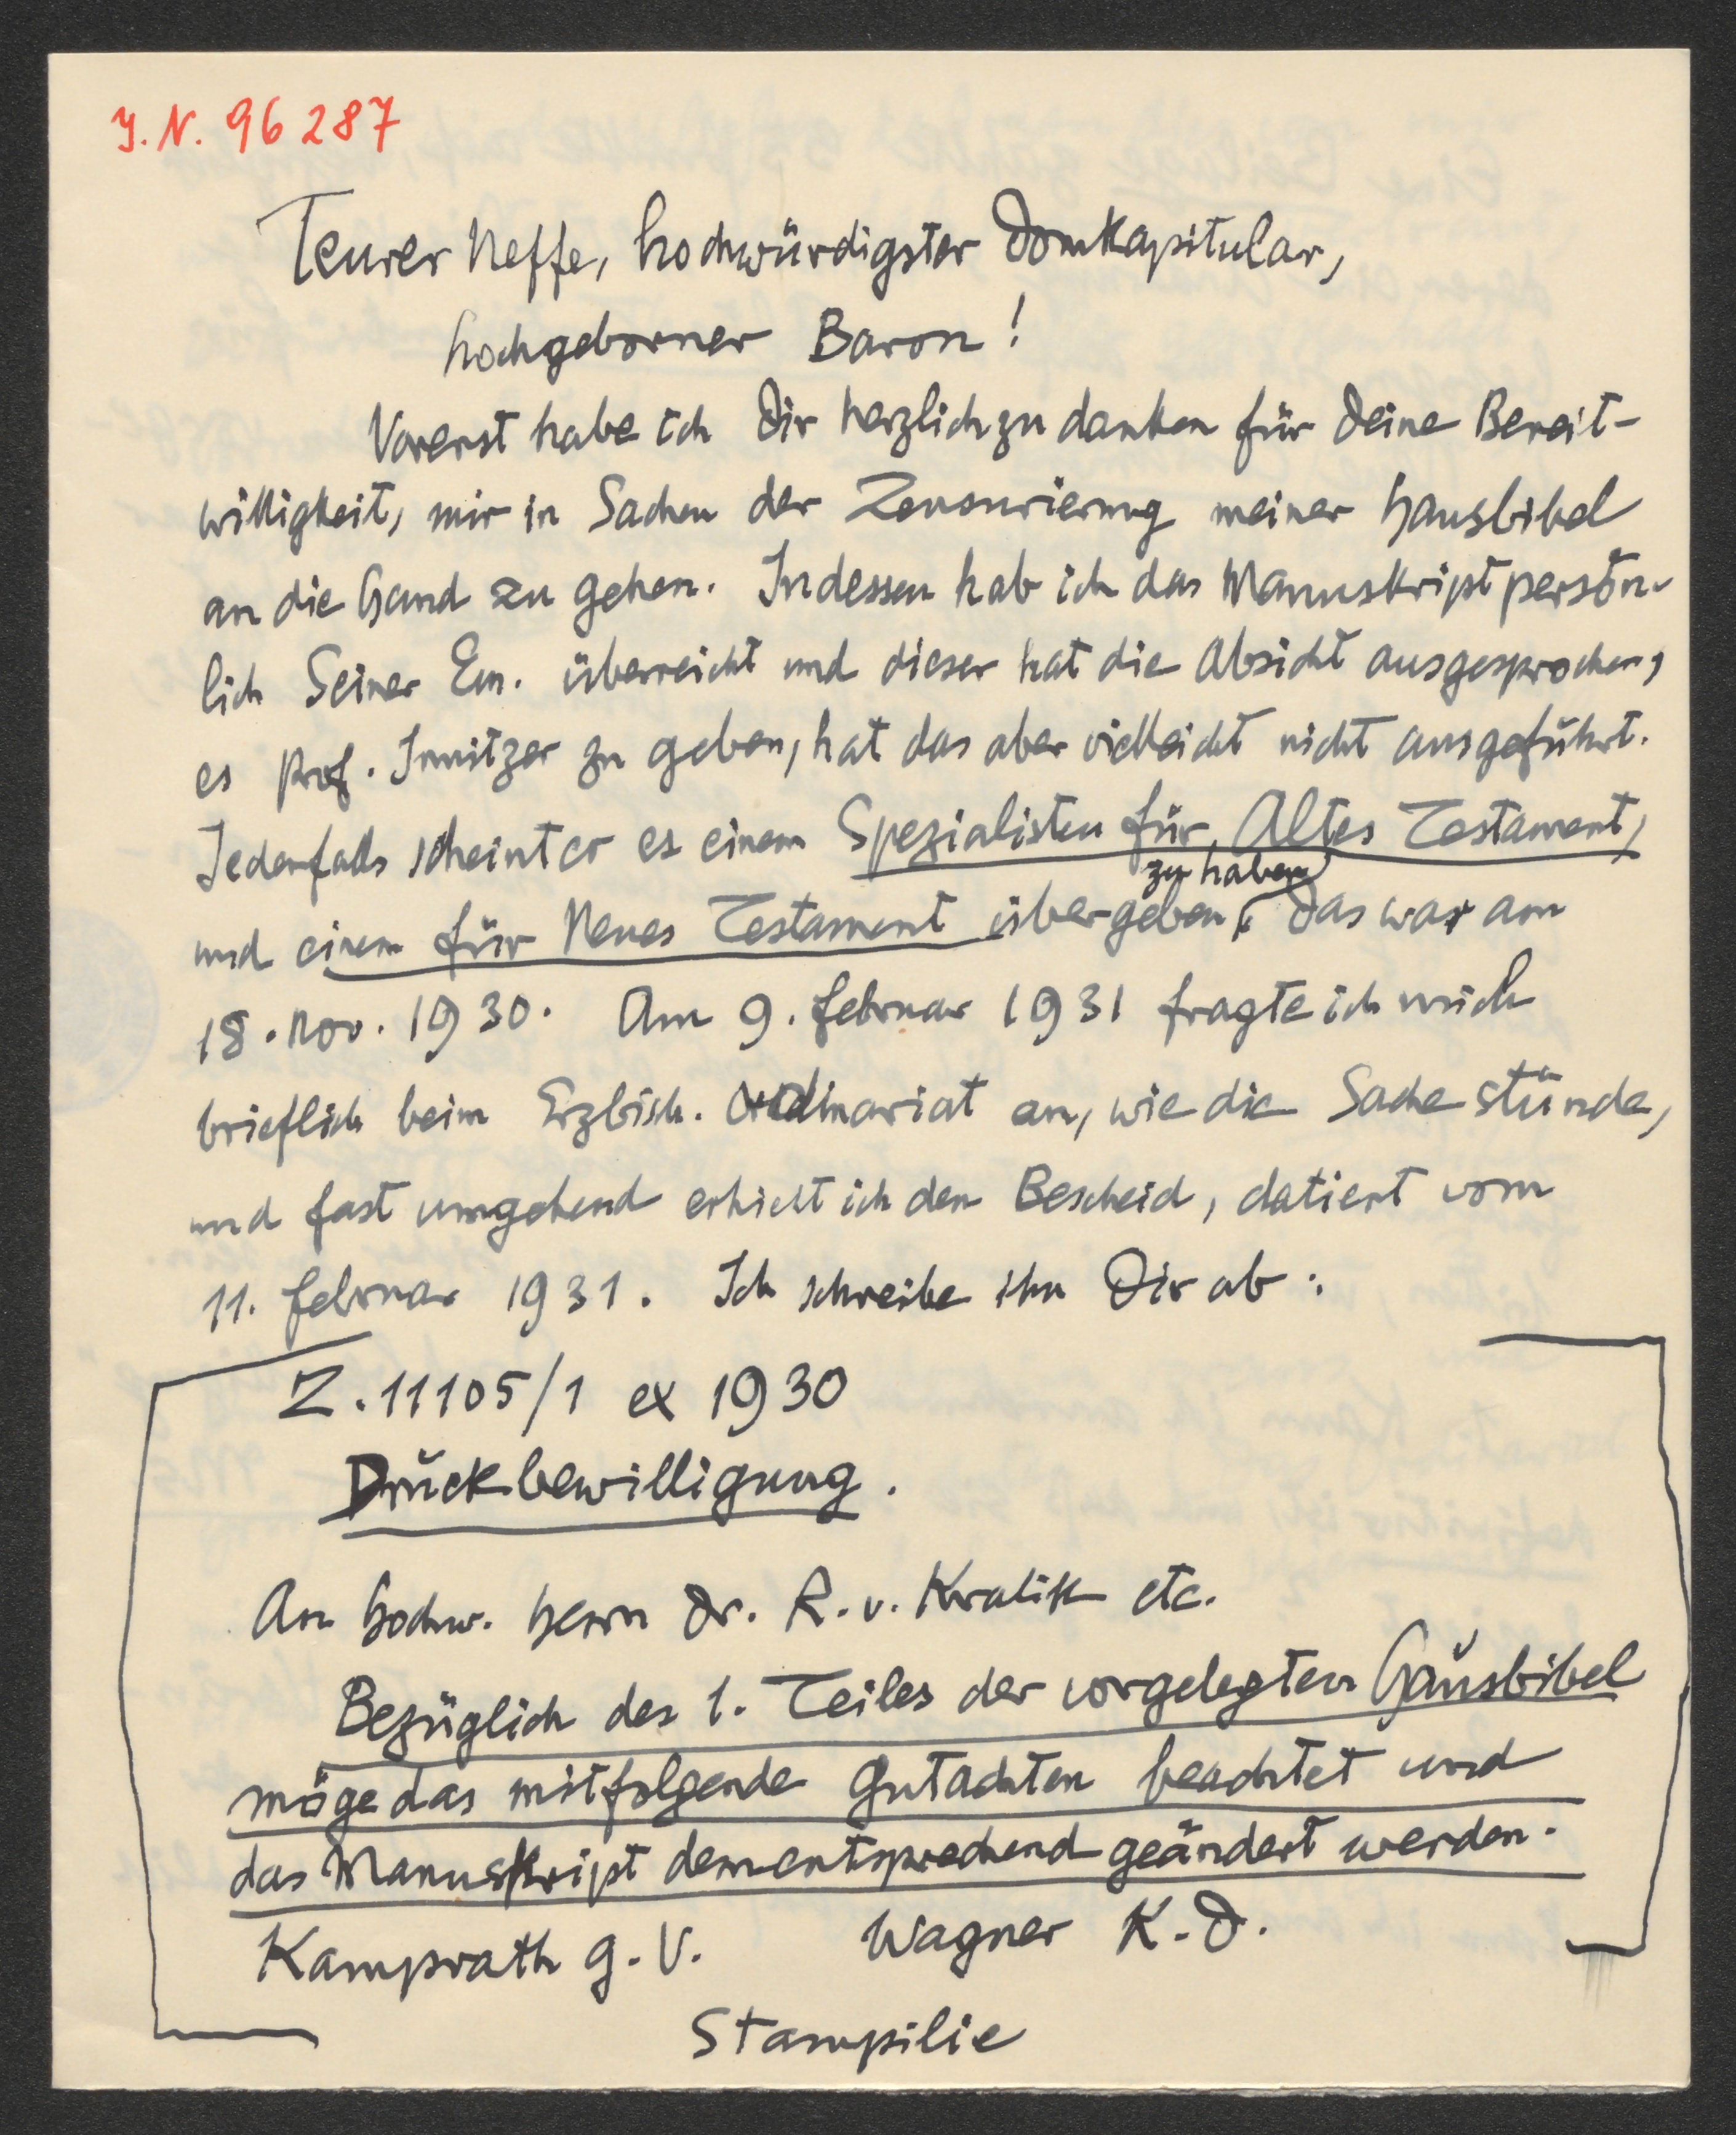 J.N. 96287
Teurer Neffe, hochwürdigster Domkapitular,
hochgeborner Baron!
Vorerst habe ich Dir herzlich zu danken für Deine Bereit-
willigkeit, mir in Sachen der Zensurierung meiner Hausbibel
an die Hand zu gehen. Indessen hab ich das Manuskript persön-
lich Seiner Em. überreicht und dieser hat die Absicht ausgesprochen,
es Prof. Innitzer zu geben, hat das aber vielleicht nicht ausgeführt.
Jedenfalls scheint er es einem Spezialisten für Altes Testament,
zu haben
und einem für Neues Testament übergeben. Das war am
18. Nov. 1930. Am 9. Februar 1931 fragte ich mich
brieflich beim Erzbisch. Ordinariat an, wie die Sache stünde,
und fast umgehend erhielt ich den Bescheid, datiert vom
11. Februar 1931. Ich schreibe ihn Dir ab:
Z. 11105/1 ex 1930
Druckbewilligung.
An Hochw. Herrn Dr. R. v. Kralik etc.
Bezüglich des 1. Teiles der vorgelegten Hausbibel
möge das mitfolgende Gutachten beachtet und
das Manuskript dementsprechend geändert werden.
Kamprath g. V. Wagner K. D.
Stampilie